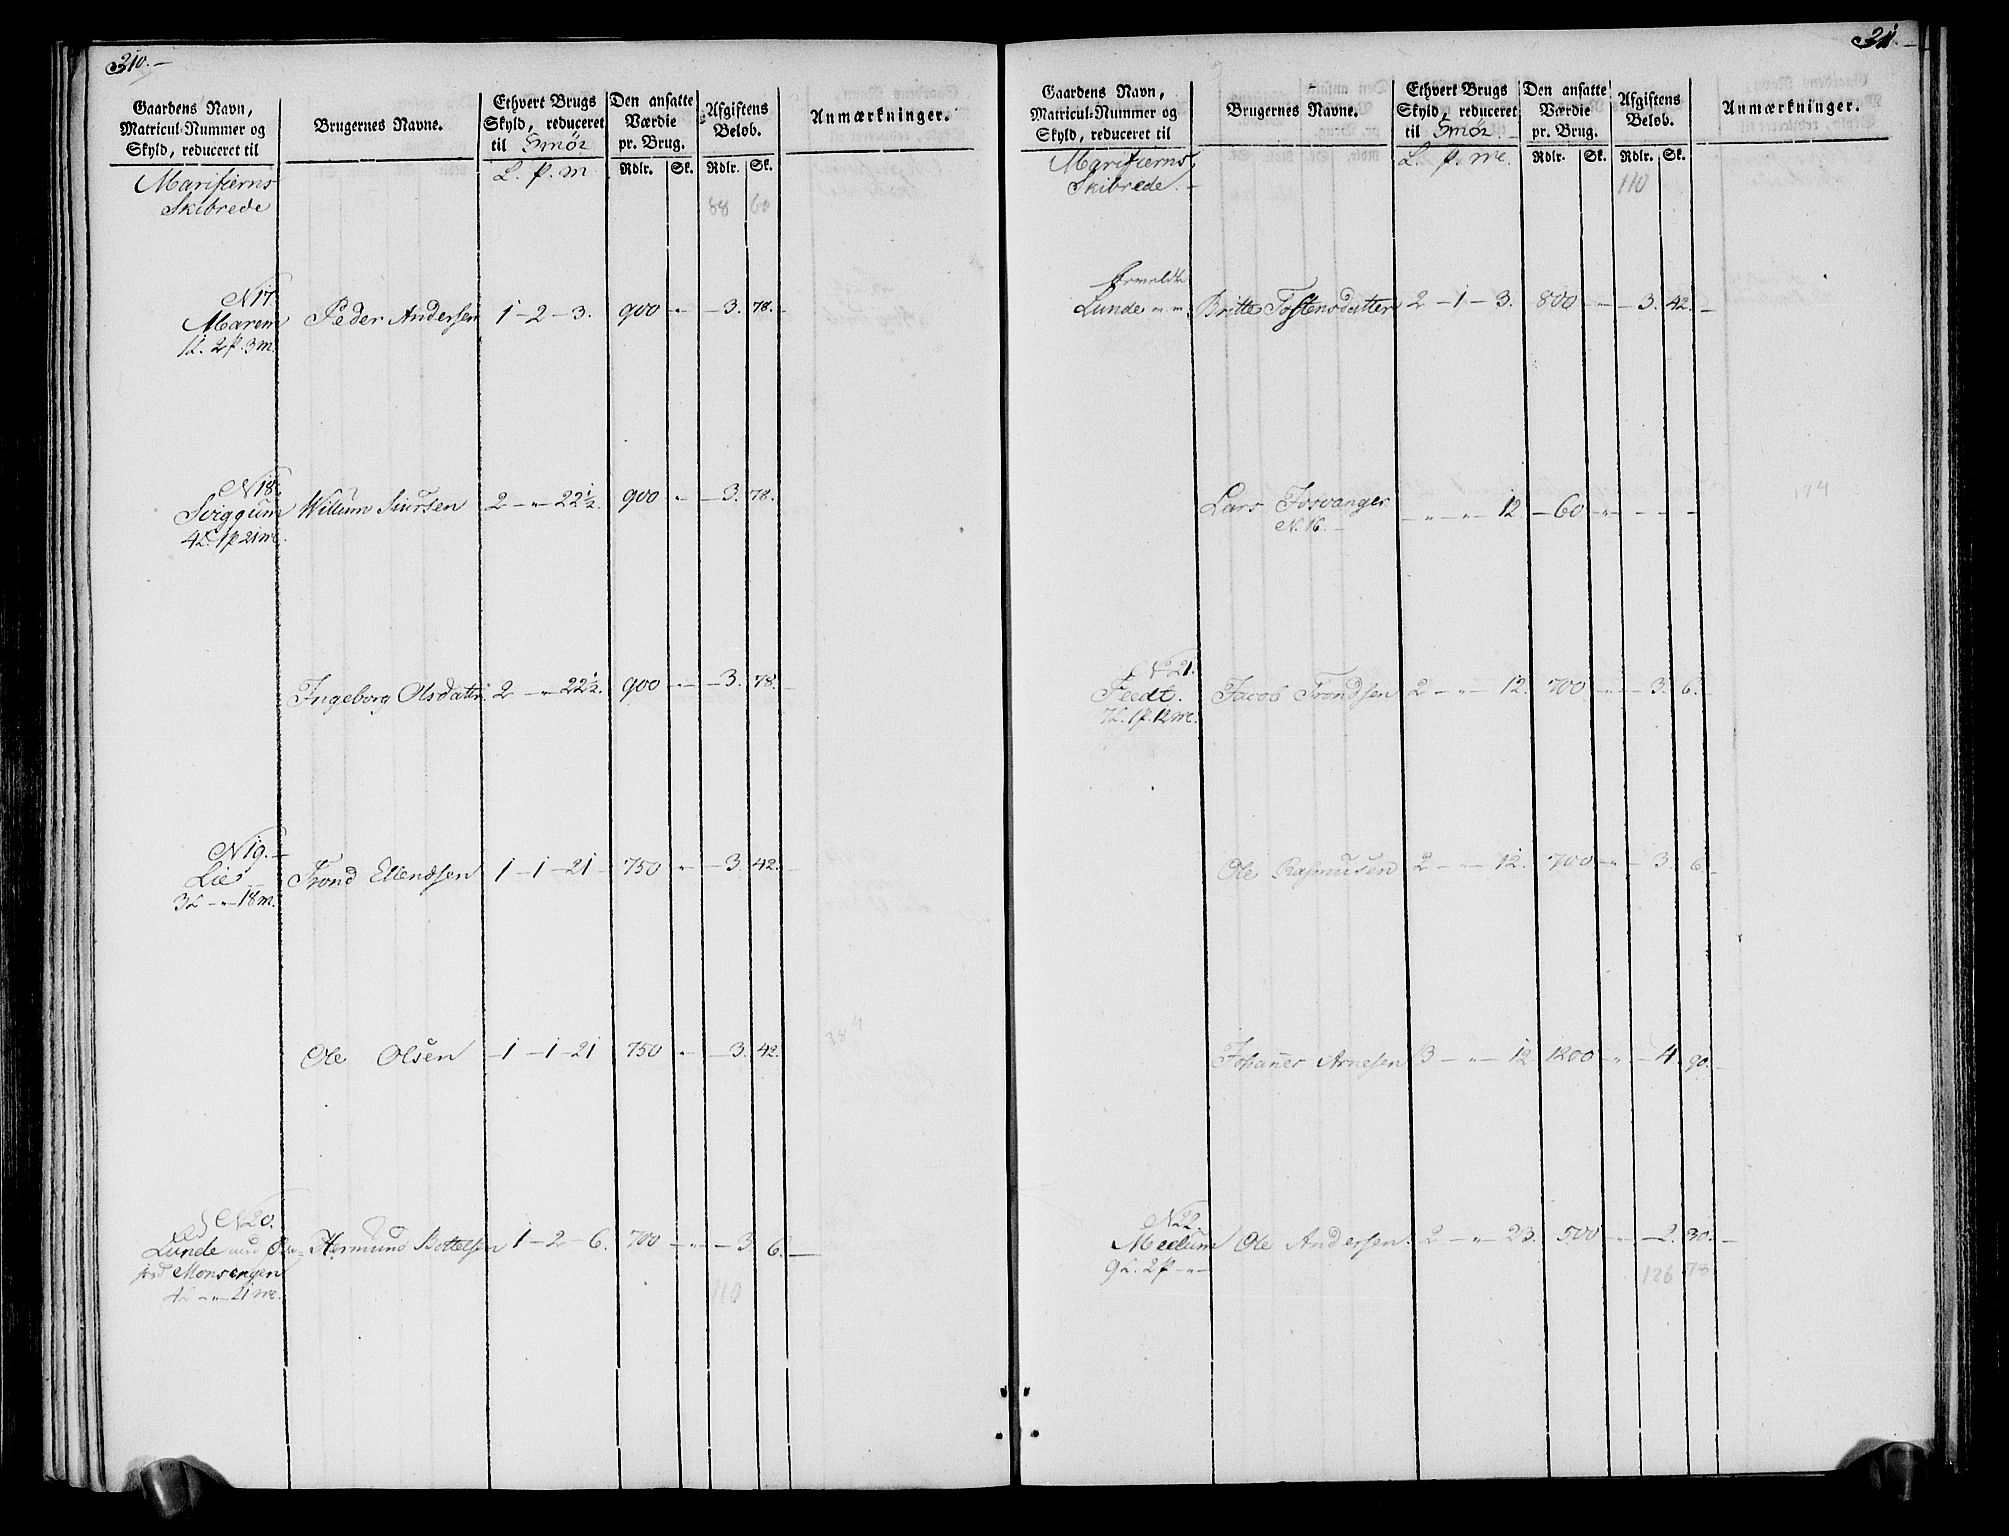 310.-
Gaardens Navn, Matricul-Nummer og Skyld, reduceret til
Brugernes Navne.
Ethvert Brugs Skyld, reduceret til Smör
Den ansatte Værdie pr. Brug.
Afgiftens Beløb.
Anmærkninger.
L. p. m
Rdlr. Sk. Rdlr. Sk.
Marifierns
Skibrede
88 60
N 17.
Marem Peder Andersen 1 - 2 - 3. 900 " - 3. 78. -
1L. 2p. 3m.
N 18.
Sviggum Willum Siursen 2 - " - 22½. 900 " - 3. 78.
4L. 1p 21m.
Ingeborg Olsdatter 2 - " - 22½. 900 - - 3. 78. -
N 19.
Lie Trond Ellendsen 1 - 1 - 21 - 750 " - 3. 42. -
3L - " - 18m.
Ole Olsen - 1 - 1 - 21 750 " - 3. 42.
N 20.
Lunde Hermund Bottelsen 1 - 2 - 6. 700 - " - 3. 6. -
Monsengen
4L - " - 21m.
110
311. -
Gaardens Navn, Matricul-Nummer og Skyld, reduceret til
Brugernes Navne.
Ethvert Brugs Skyld, reduceret til Smör
Den ansatte Værdie pr. Brug.
Afgiftens Beløb.
Anmærkninger.
L. p. m.
Rdlr. Sk. Rdlr. Sk.
Marifierns
Skibrede. -
110
formeldte
Lunde " " Britte Tostensdatter 2 - 1 - 3. 800 - - 3. 42. -
Lars Josvanger - " - " - 12 - 60 - " - - - -
N. 16. -
174
N 21.
Feedt. Jacob Trondsen 2 - " - 12. 700 - " - 3. 6. -
7L. 1p. 12m.
Ole Rasmusen 2 - " - 12. 700 - " - 3. 6 -
Johaner Arnesen 3 - " - 12 1200 - " - 4. 90. -
N 22.
Melum Ole Andersen 2 - " - 23. 500 - " - 2. 30. -
9L. 2p - " -
126 78